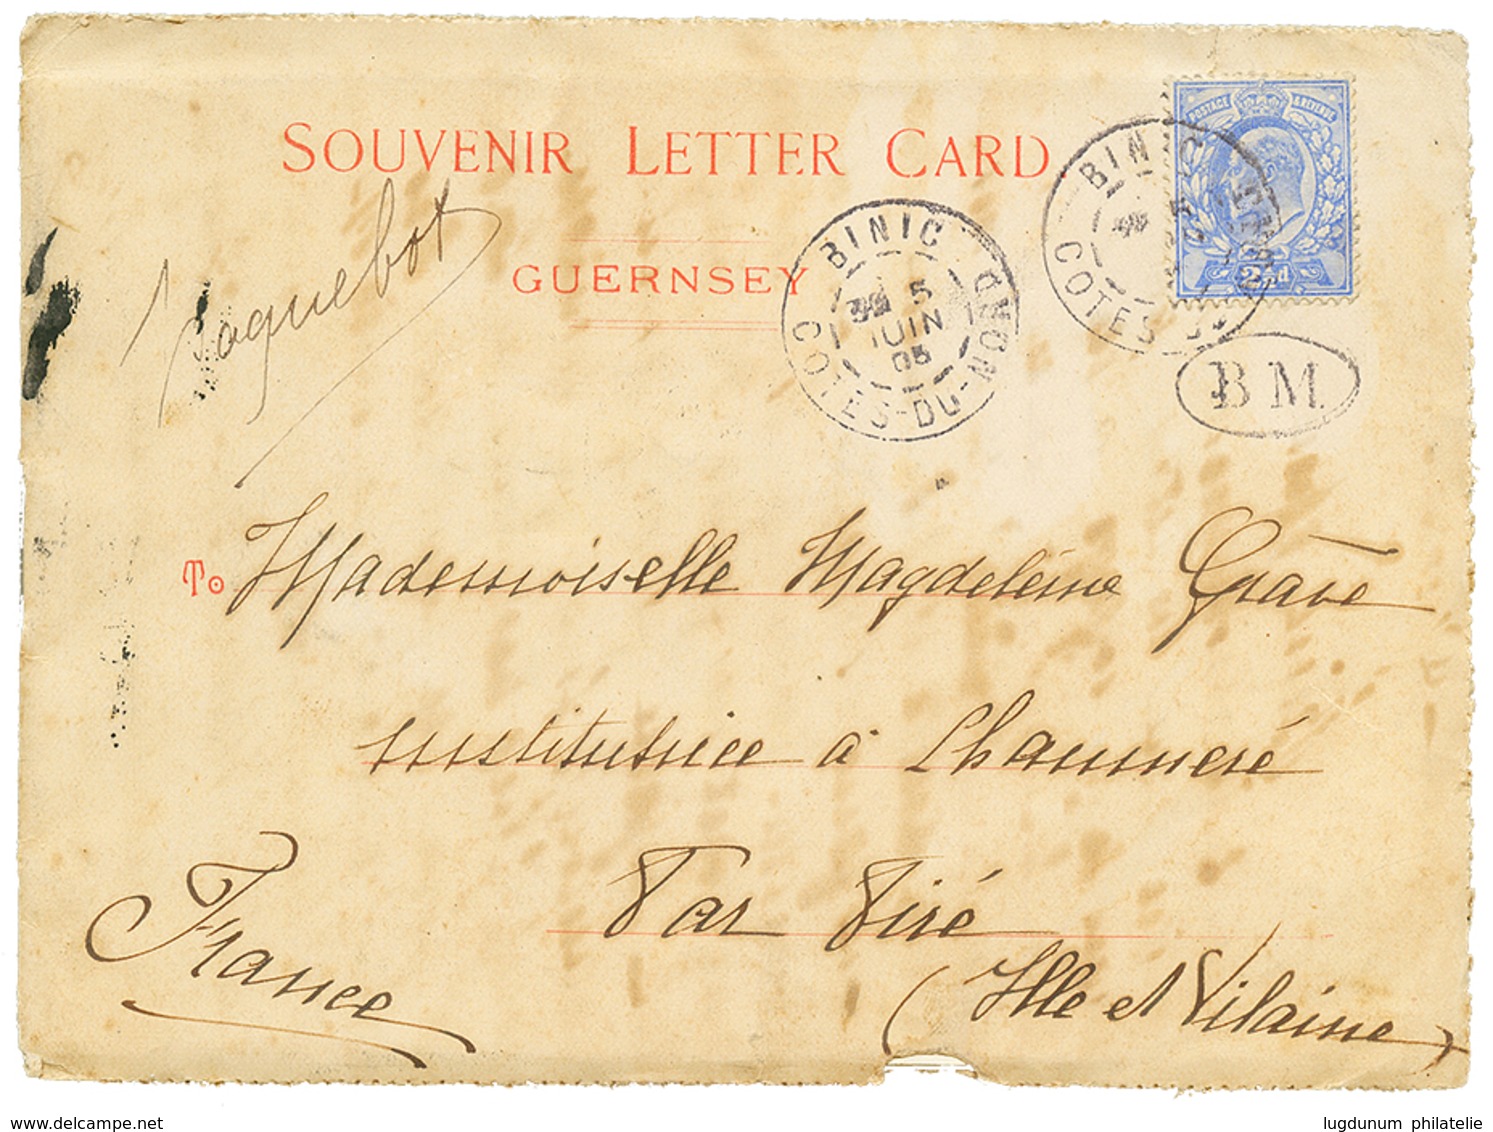 SOUVENIR LETTER CARD
GUERNSEY
Paquebot
BINIC
5
JUIN
05
COTES-DU-NORD
BINIC
COTES-DU-NORD
POSTAGE & REVENUE
2½d
BM
To Mademoiselle Magdeleine Grave
institutrice à Chaumeré
Par Piré
(Ille et Vilaine)
France
www.delcampe.net
lugdunum philatelie